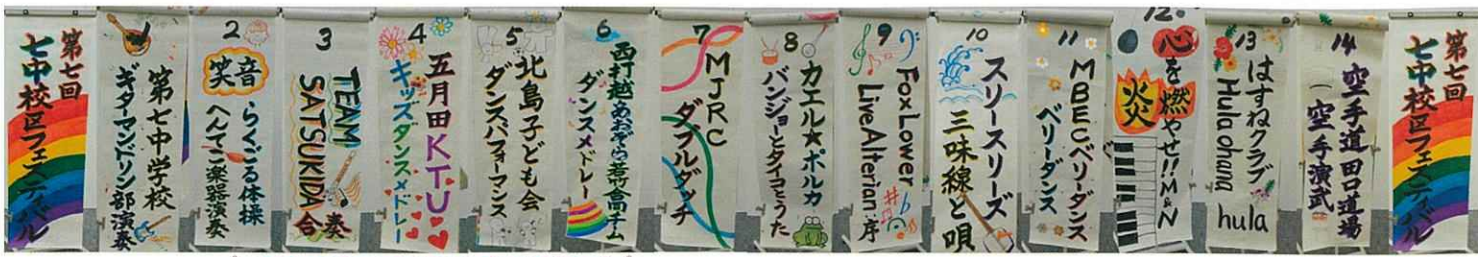 第七回
七中校区フェスティバル
第七中学校
ギターマンドリン部演奏
2
笑音
らくごる体操
へんてこ楽器演奏
3
TEAM
SATSUKIDA
合奏
4
五月田KTU
キッズダンスメドレー
5
北島子ども会
ダンスパフォーマンス
6
ダンスメドレー
7
MJRC
ダブルダッチ
8
カエル★ポルカ
バンジョーとタイコとうた
9
FoxLower
LiveAlterian 序
10
スリースリーズ
三味線と唄
11
MBECベリーダンス
ベリーダンス
12
心を燃やせ!!M&N
炎
13
はすねクラブ
Hula ohana
hula
14
空手道田口道場
(空手演武)
第七回
七中校区フェスティバル